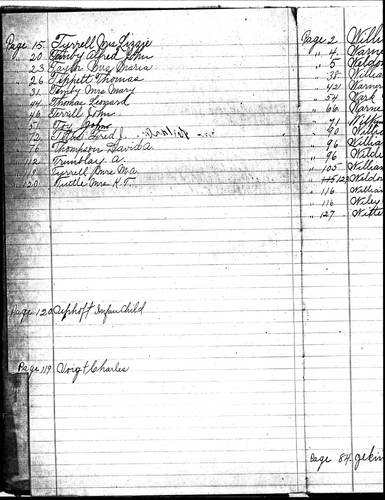 Page 15 Tyrrell Mrs Lizzie
" 20 Timby Alfred John
" 23 Taylor Mrs Maria
" 26 Tippett Thomas
" 31 Timby Mrs Mary
" 44 Thomas Leopard
" 46 Terrill John
Toy John
Fred J.
" 76 Thompson David A.
" 112 Tremblay A.
Tyrrell Mrs M.A.
" 120 Tuttle Mrs K.T.
Page 120 Uphoft Infan Child
Page 119 Voigt Charles
Page 2 Willi
" 4 Warn
" 5 Weldon
" 38 Willia
" 42 Warny
" 54 Wark
" 66 Warne
" 71
" 90 Willi
" 96 Willia
" 96 Wilde
" 105 Willia
Weldon
" 116 Willia
" 116 Wiley
" 127 Witte
Page 84 Jekin